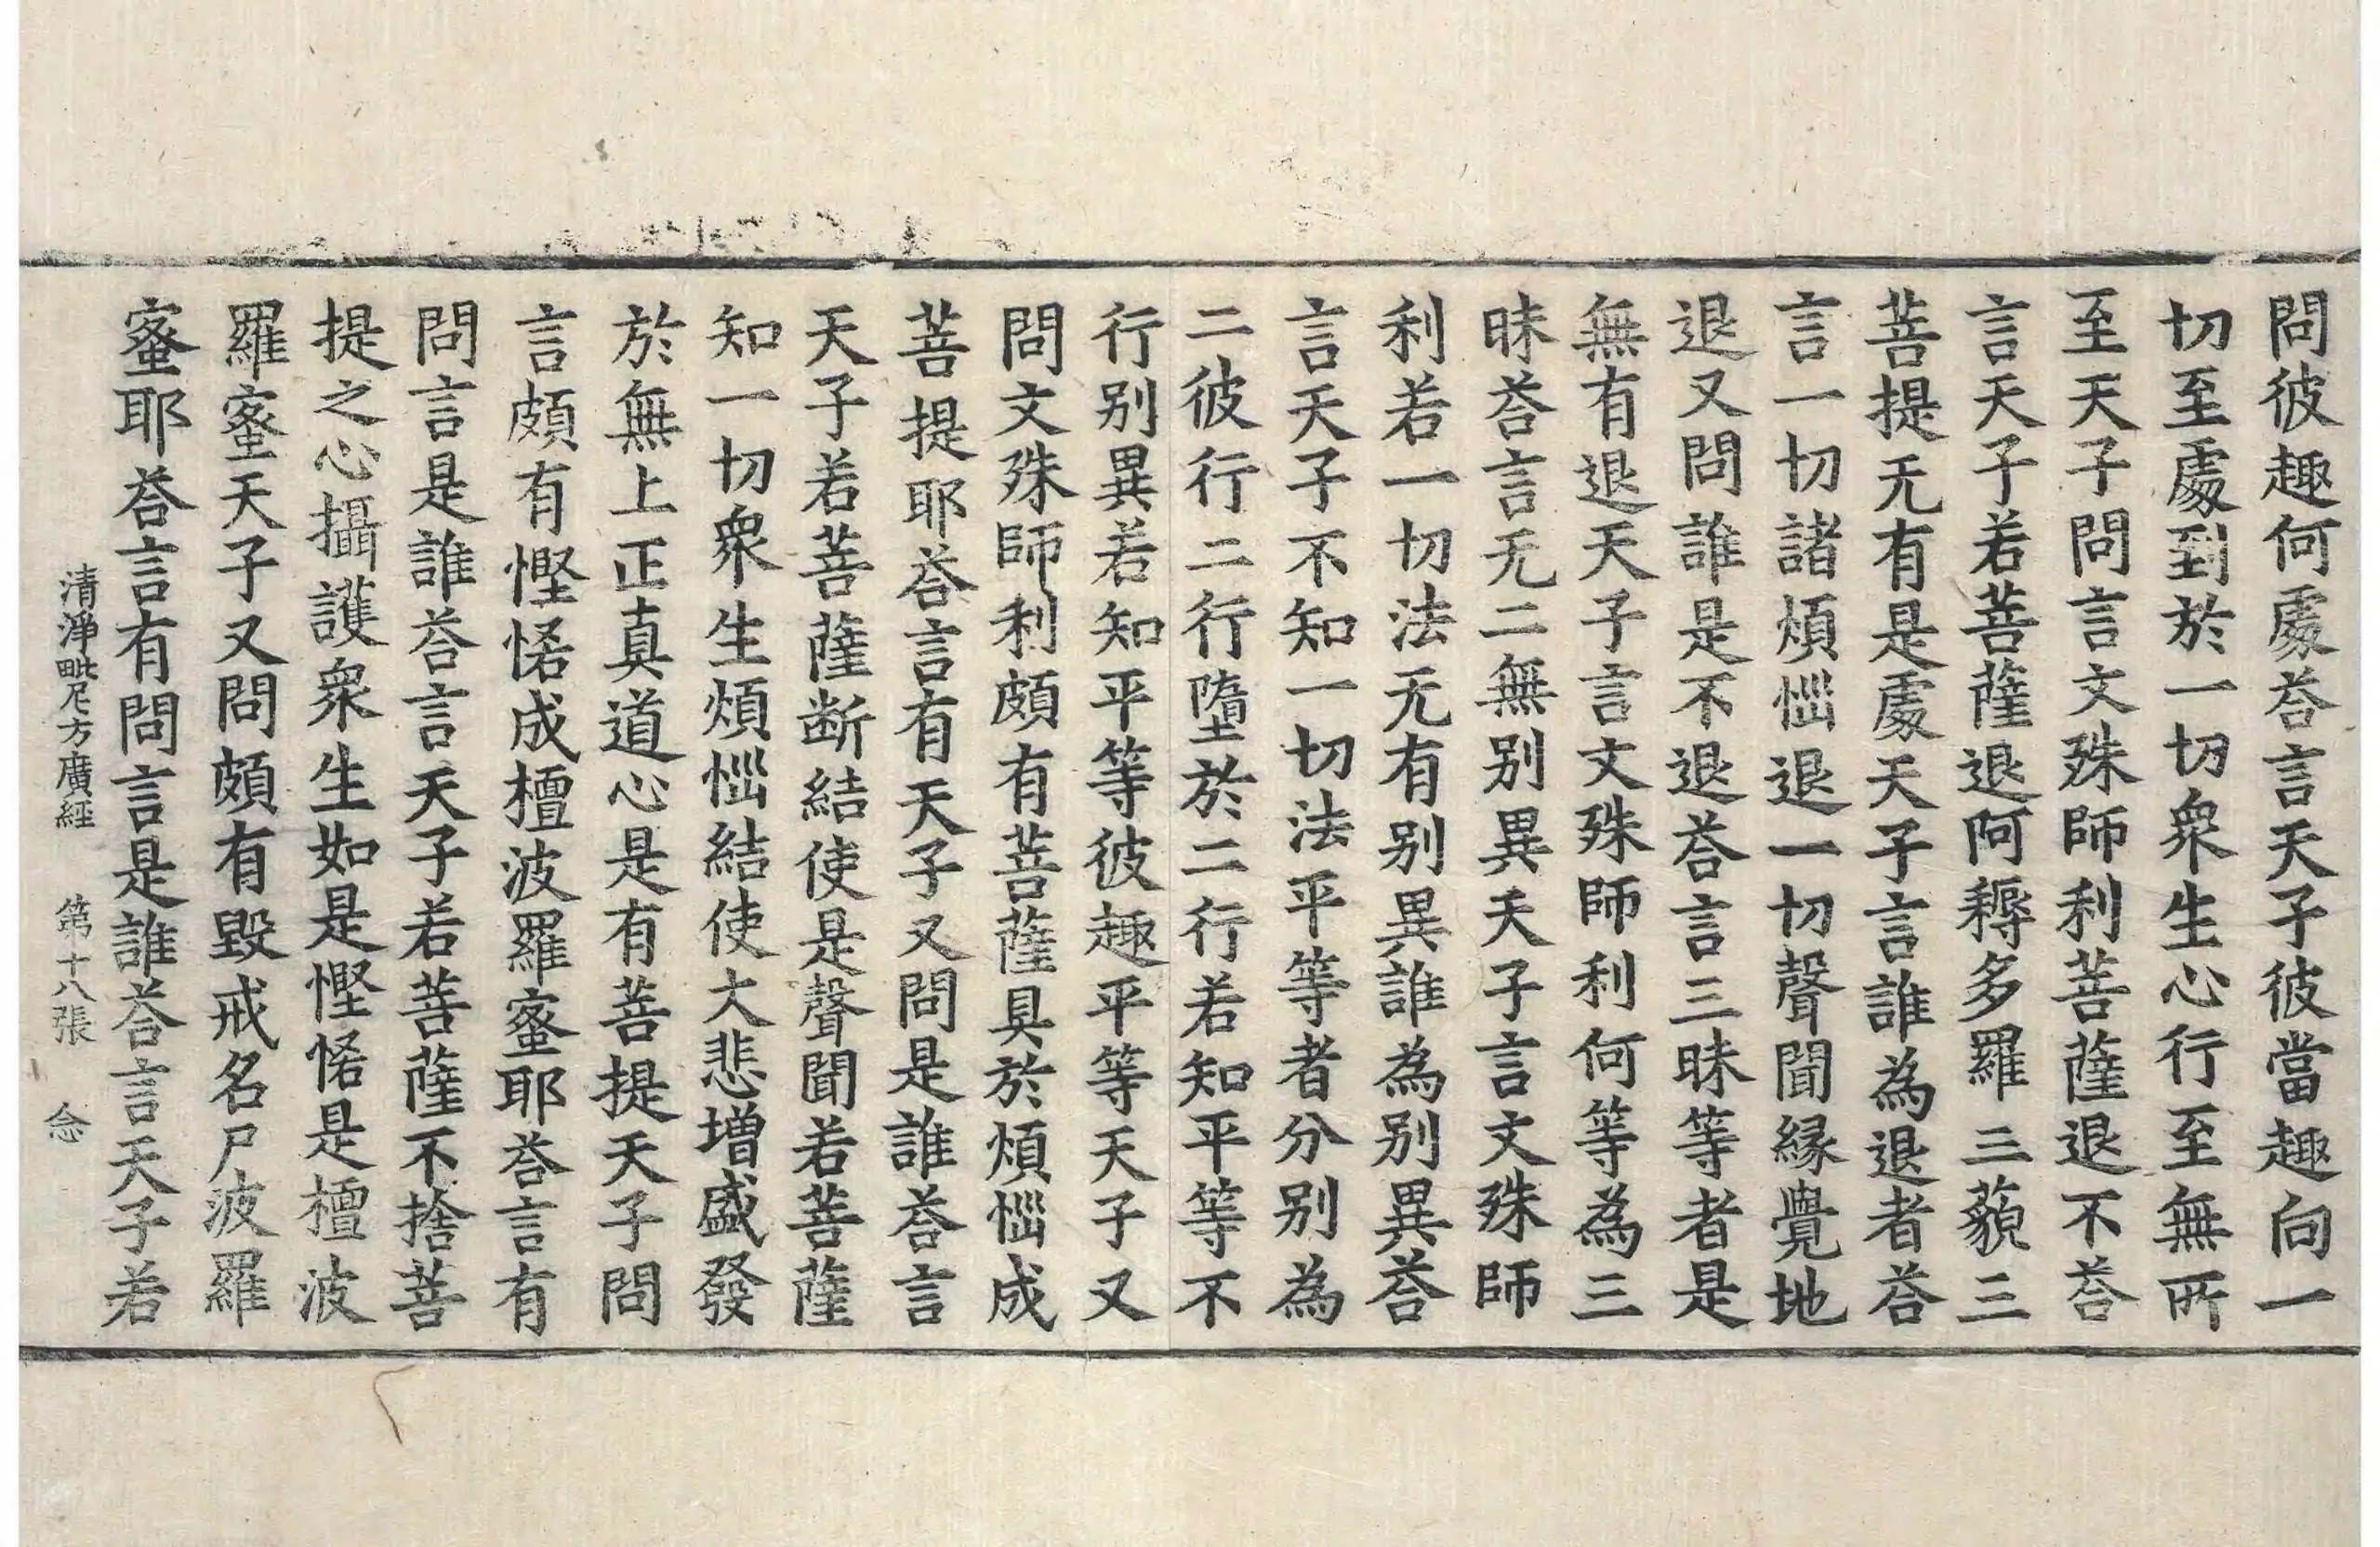 問彼趣何處荅言天子彼當趣向一
切至處到於一切衆生心行至無所
至天子問言文殊師利菩薩退不荅
言天子若菩薩退阿耨多羅三藐三
菩提无有是處天子言誰為退者荅
言一切諸煩惱退一切聲聞緣覺地
退又問誰是不退荅言三昧等者是
無有退天子言文殊師利何等為三
昧荅言无二無別異天子言文殊師
利若一切法无有別異誰為別異荅
言天子不知一切法平等者分別為
二彼行二行墮於二行若知平等不
行別異若知平等彼趣平等天子又
問文殊師利頗有菩薩具於煩惱成
菩提耶荅言有天子又問是誰荅言
天子若菩薩断結使是聲聞若菩薩
知一切衆生煩惱結使大悲增盛發
於無上正真道心是有菩提天子問
言頗有慳悋成檀波羅蜜耶荅言有
問言是誰荅言天子若菩薩不捨菩
提之心攝護衆生如是慳悋是檀波
羅蜜天子又問頗有毀戒名尸波羅
蜜耶荅言有問言是誰荅言天子若
清淨毗尼方廣經 第十八張 念